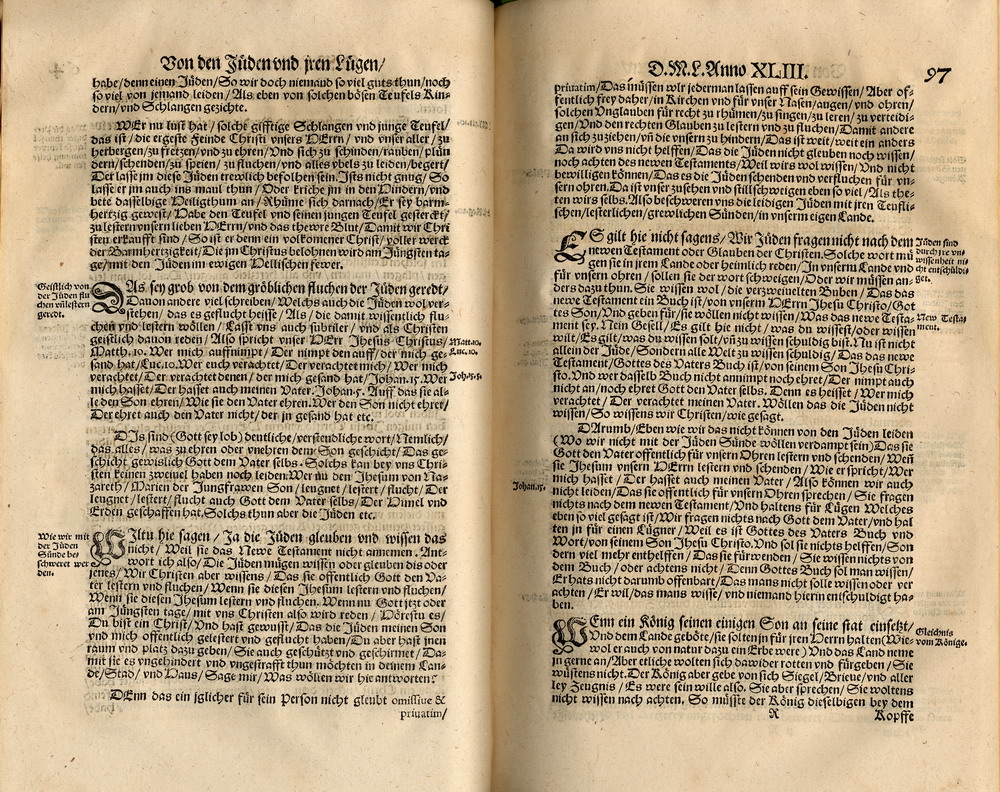 Von den Jüden vnd jren Lügen/
habe/denn einen Jüden/So wir doch niemand so viel guts thun/noch
so viel von jemand leiden/Als eben von solchen bösen Teufels Kin-
dern/vnd Schlangen gezichte.
WEr nu lust hat/solche gifftige Schlangen vnd junge Teufel/
das ist/die ergeste Feinde Christi vnsers HErrn/vnd vnser aller/zu
herbergen/zu fretzen/vnd zu ehren/Vnd sich zu schinden/rauben/plün
dern/schenden/zu speien/zu fluchen/vnd alles vbels zu leiden/begert/
Der lasse jm diese Jüden trewlich befolhen sein. Ists nicht gnug/So
lasse er jm auch ins maul thun/Oder krieche jm in den Hindern/vnd
bete dasselbige Heiligthum an/Rhüme sich darnach/Er sey barm-
hertzig gewest/Habe den Teufel vnd seinen jungen Teufel gesterckt/
zu lestern vnsern lieben HErrn/vnd das thewre Blut/Damit wir Chri
sten erkaufft sind/So ist er denn ein volkomener Christ/voller werck
der Barmhertzigkeit/Die jm Christus belohnen wird am Jüngsten ta-
ge/mit den Jüden im ewigen Hellischen fewer.
Geistlich von
der Jüden flu
chen vñ lestern
geredt.
DAs sey grob von dem gröblichen fluchen der Jüden geredt/
Dauon andere viel schreiben/Welchs auch die Jüden wol ver-
stehen/das es geflucht heisse/Als/die damit wissentlich flu-
chen vnd lestern wöllen/Lasst vns auch subtiler/vnd als Christen
geistlich dauon reden/Also spricht vnser HErr Jhesus Christus/
Matth.10. Wer mich auffnimpt/Der nimpt den auff/der mich ge-
sand hat/Luc.10. Wer euch verachtet/Der verachtet mich/Wer mich
verachtet/Der verachtet denen/der mich gesand hat/Johan.15. Wer
mich hasset/Der hasset auch meinen Vater. Johan.5. Auff das sie al-
le den Son ehren/Wie sie den Vater ehren. Wer den Son nicht ehret/
Der ehret auch den Vater nicht/der jn gesand hat etc.
Matt.10.
Luc.10.
Joh.15.5.
DIs sind (Gott sey lob) deutliche/verstendliche wort/Nemlich/
das alles/was zu ehren oder vnehren dem Son geschicht/Das ge-
schicht gewislich Gott dem Vater selbs. Solchs kan bey vns Chri-
sten keinen zweiuel haben noch leiden. Wer nu den Jhesum von Na-
zareth/Marien der Jungfrawen Son/leugnet/lestert/flucht/Der
leugnet/lestert/flucht auch Gott dem Vater selbs/Der Himel vnd
Erden geschaffen hat. Solchs thun aber die Jüden etc.
Wie wir mit
der Jüden
Sünde be-
schweret wer
den.
WIltu hie sagen/Ja die Jüden gleuben vnd wissen das
nicht/Weil sie das Newe Testament nicht annemen. Ant-
wort ich also/Die Jüden mügen wissen oder gleuben dis oder
jenes/Wir Christen aber wissens/Das sie offentlich Gott den Va-
ter lestern vnd fluchen/Wenn sie diesen Jhesum lestern vnd fluchen/
Wenn sie diesen Jhesum lestern vnd fluchen. Wenn nu Gott jtzt oder
am Jüngsten tage/mit vns Christen also wird reden/Hörestu es/
Du bist ein Christ/Vnd hast gewusst/Das die Jüden meinen Son
vnd mich offentlich gelestert vnd geflucht haben/Du aber hast jnen
raum vnd platz dazu geben/Sie auch geschützt vnd geschirmet/Da-
mit sie es vngehindert vnd vngestrafft thun möchten in deinem Lan-
de/Stad/vnd Haus/Sage mir/Was wöllen wir hie antworten?
DEnn das ein jglicher für sein Person nicht gleubt omissiue &
priuatim/
D.M.L. Anno XLIII.
97
priuatim/Das müssen wir jederman lassen auff sein Gewissen/Aber of-
fentlich frey daher/in Kirchen vnd für vnser Nasen/augen/vnd ohren/
solchen Vnglauben für recht zu rhümen/zu singen/zu leren/zu verteidi-
gen/Vnd den rechten Glauben zu lestern vnd zu fluchen/Damit andere
an sich zu ziehen/vñ die vnsern zu hindern/Das ist weit/weit ein anders
Da wird vns nicht helffen/Das die Jüden nicht gleuben noch wissen/
noch achten des newen Testaments/Weil wirs wol wissen/Vnd nicht
bewilligen können/Das es die Jüden schenden vnd verfluchen für vn-
sern ohren. Da ist vnser zusehen vnd stillschweigen eben so viel/Als the-
ten wirs selbs. Also beschweren vns die leidigen Jüden mit jren Teufli-
schen/lesterlichen/grewlichen Sünden/in vnserm eigen Lande.
ES gilt hie nicht sagens/Wir Jüden fragen nicht nach dem
newen Testament oder Glauben der Christen. Solche wort mü
gen sie in jrem Lande oder heimlich reden/In vnserm Lande vnd
für vnsern ohren/sollen sie der wort schweigen/Oder wir müssen an-
ders dazu thun. Sie wissen wol/die verzweiuelten Buben/Das das
newe Testament ein Buch ist/von vnserm HErrn Jhesu Christo/Got
tes Son/Vnd geben für/sie wöllen nicht wissen/Was das newe Testa-
ment sey. Nein Gesell/Es gilt hie nicht/was du wissest/oder wissen
wilt/Es gilt/was du wissen solt/vñ zu wissen schuldig bist. Nu ist nicht
allein der Jüde/Sondern alle Welt zu wissen schuldig/Das das newe
Testament/Gottes des Vaters Buch ist/von seinem Son Jhesu Chri-
sto. Vnd wer dasselb Buch nicht annimpt noch ehret/Der nimpt auch
nicht an/noch ehret Gott den Vater selbs. Denn es heisset/Wer mich
verachtet/Der verachtet meinen Vater. Wöllen das die Jüden nicht
wissen/So wissens wir Christen/wie gesagt.
Jüden sind
durch jre vn-
wissenheit ni-
cht entschüldi-
get.
New Testa-
ment.
DArumb/Eben wie wir das nicht können von den Jüden leiden
(Wo wir nicht mit der Jüden Sünde wöllen verdampt sein) Das sie
Gott den Vater offentlich für vnsern Ohren lestern vnd schenden/Weñ
sie Jhesum vnsern HErrn lestern vnd schenden/Wie er spricht/Wer
mich hasset/Der hasset auch meinen Vater/Also können wir auch
nicht leiden/Das sie offentlich für vnsern Ohren sprechen/Sie fragen
nichts nach dem newen Testament/Vnd haltens für Lügen Welches
eben so viel gesagt ist/Wir fragen nichts nach Gott dem Vater/vnd hal
ten jn für einen Lügner/Weil es ist Gottes des Vaters Buch vnd
Wort/von seinem Son Jhesu Christo. Vnd sol sie nichts helffen/Son
dern viel mehr enthelffen/Das sie fürwenden/Sie wissen nichts von
dem Buch/oder achtens nicht/Denn Gottes Buch sol man wissen/
Er hats nicht darumb offenbart/Das mans nicht solle wissen oder ver
achten/Er wil/das mans wisse/vnd niemand hierin entschüldigt ha-
ben.
Johan.15.
WEnn ein König seinen einigen Son an seine stat einsetzt/
Vnd dem Lande geböte/sie solten jn für jren Herrn halten (Wie-
wol er auch von natur dazu ein Erbe were) Vnd das Land neme
jn gerne an/Aber etliche wolten sich dawider rotten vnd fürgeben/Sie
wüstens nicht. Der König aber gebe von sich Siegel/Brieue/vnd aller
ley Zeugnis/Es were sein wille also. Sie aber sprechen/Sie woltens
nicht wissen nach achten. So müsste der König dieselbigen bey dem
Gleichnis
vom Könige.
R
Kopffe